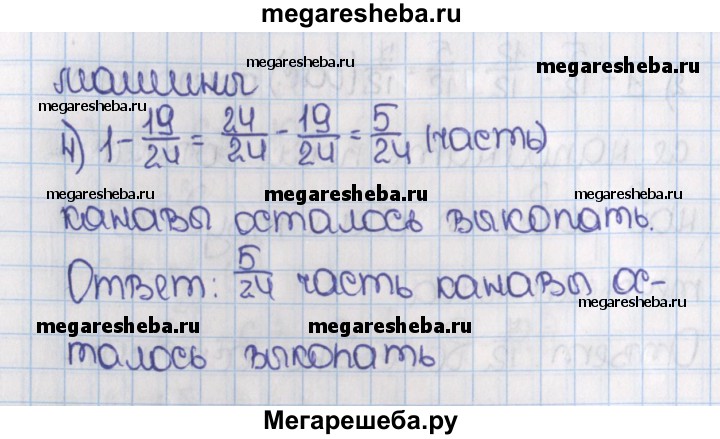 megaresheba.ru
машины
megaresheba.ru
megaresheba.ru
megaresheba.ru
4) 1 - 19/24 = 24/24 - 19/24 = 5/24 (часть)
megaresheba.ru
megaresheba.ru
megaresheba.ru
канавы осталось выкопать.
Ответ: 5/24 часть канавы ос-
megaresheba.ru
megaresheba.ru
megaresheba.ru
талось выкопать
megaresheba.ru
Мегарешеба.ру